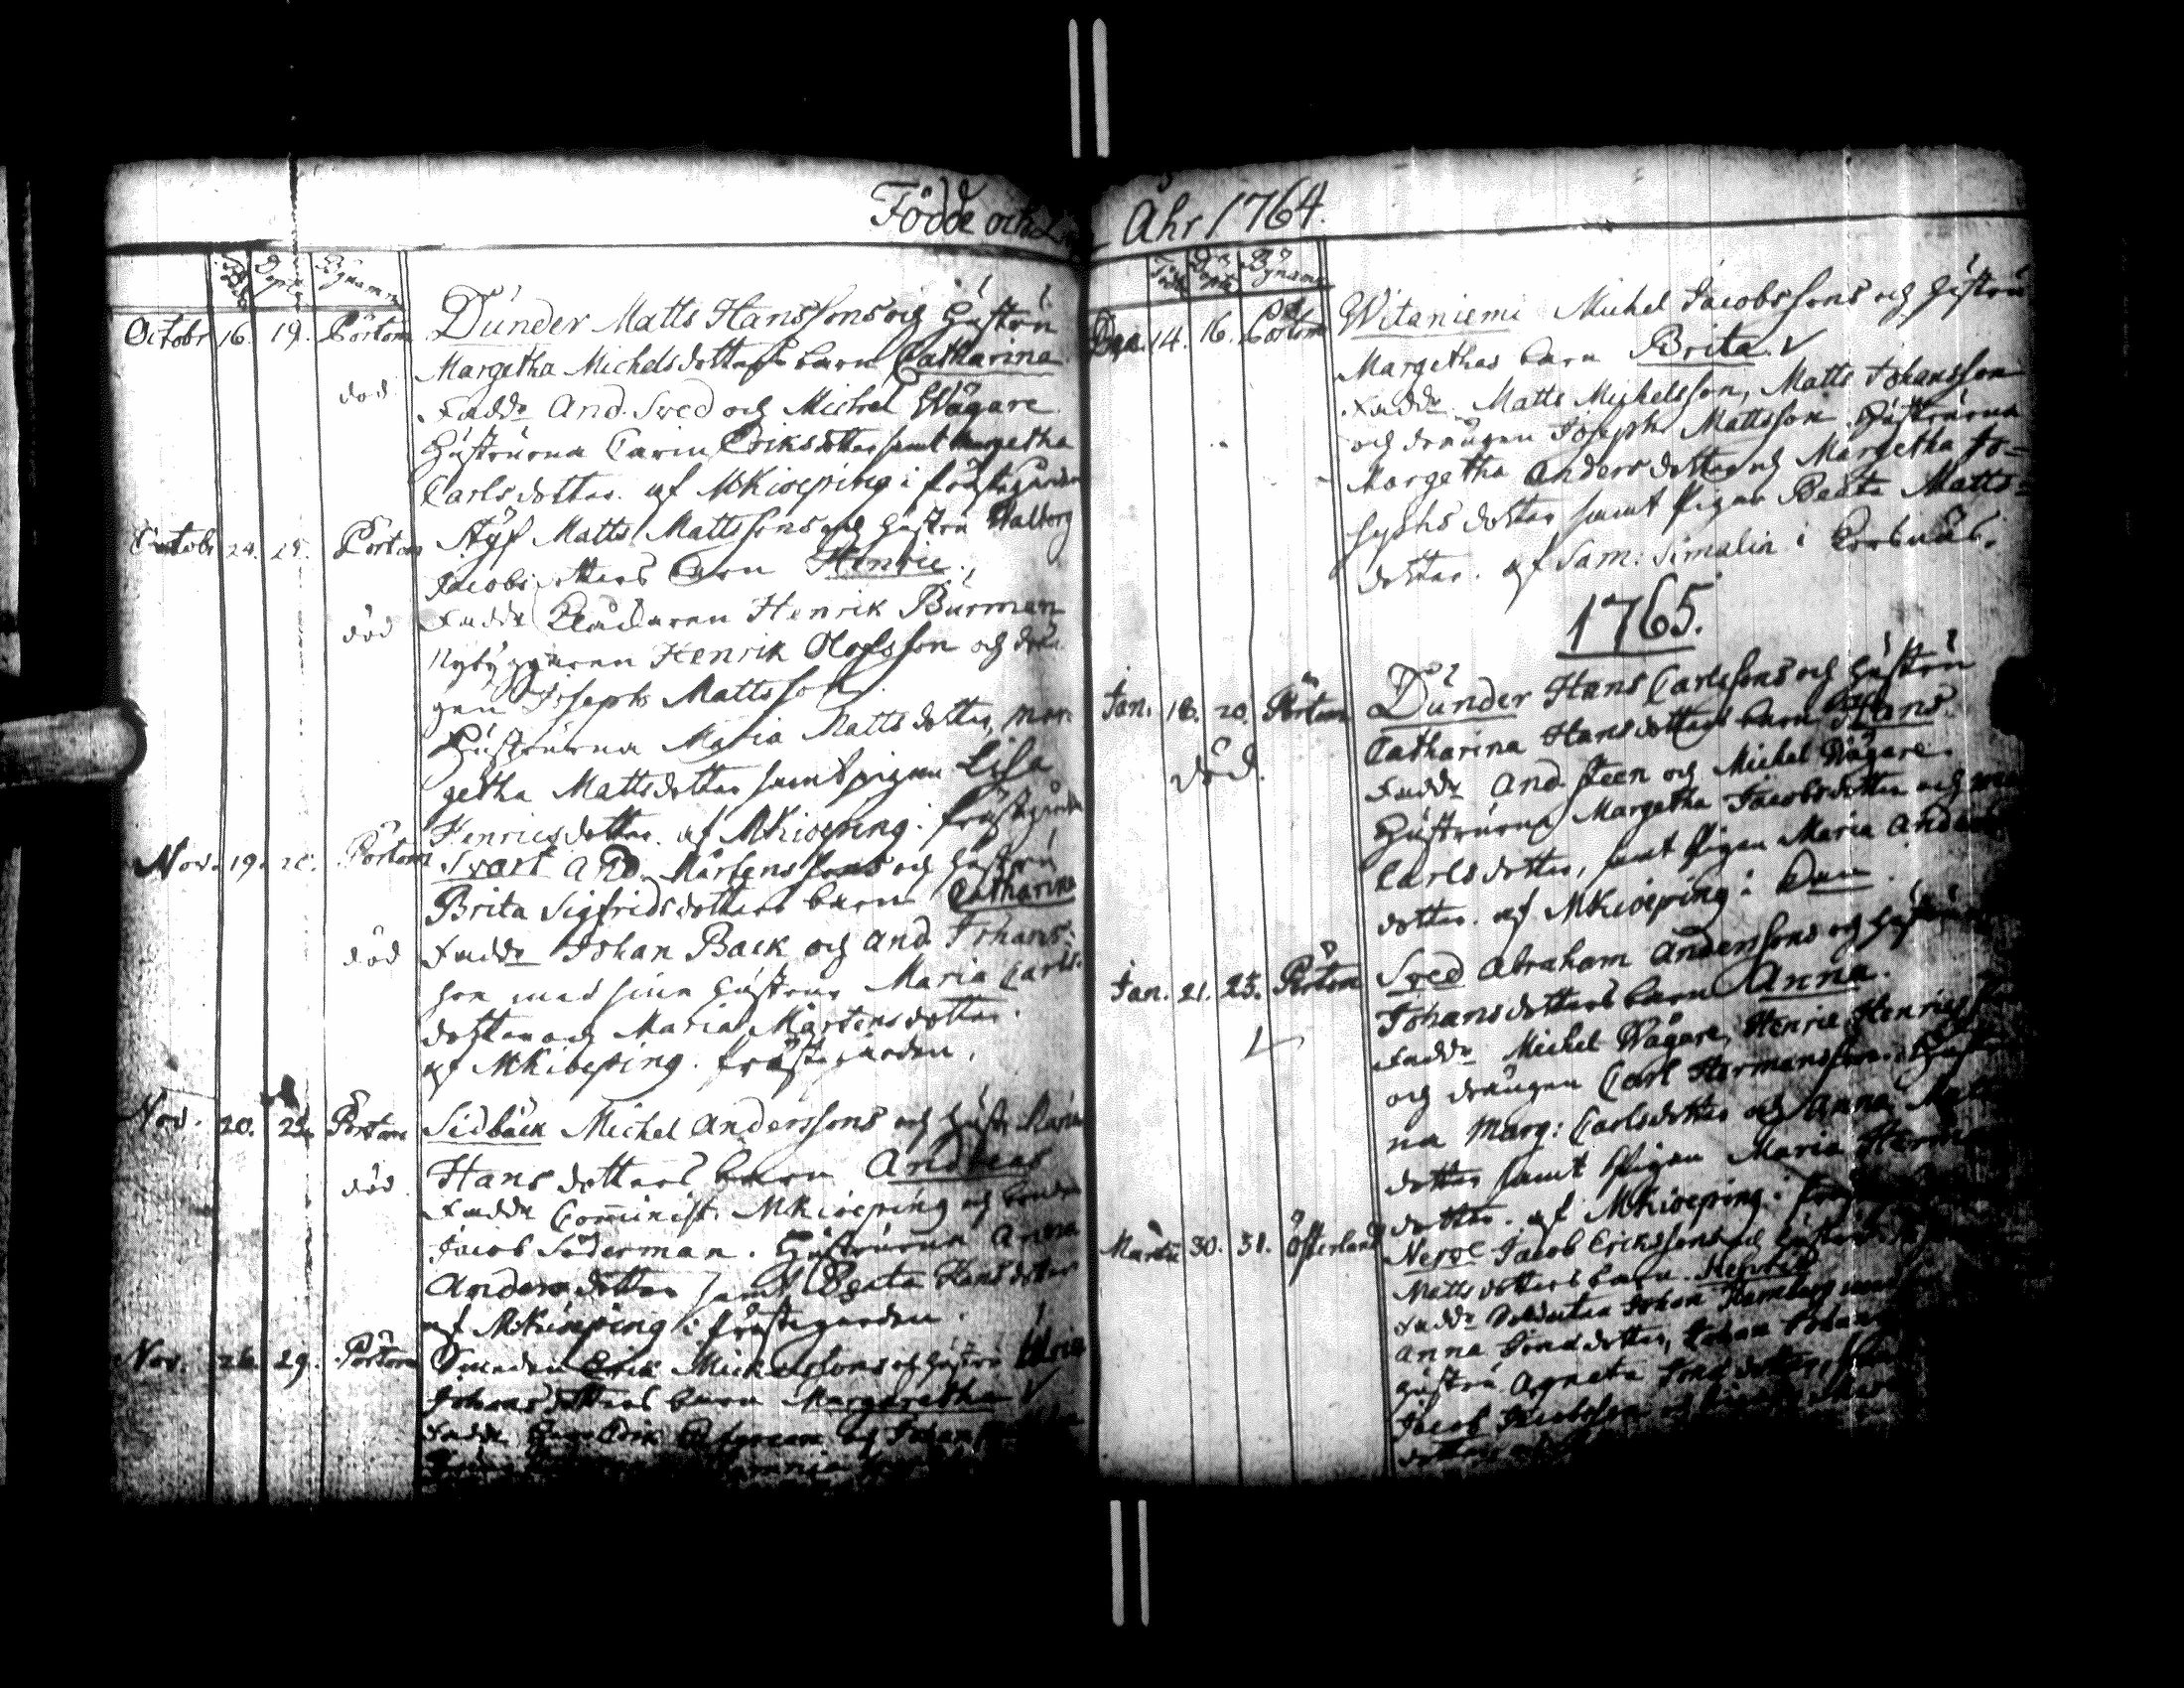 Födde och
Född Döpte Bynamn
Octobr 16. 19. Pörtom Dunder Matts Hanssons och Hustru
Margetha Michelsdotters barn Catharina
död
Fadd. And. Sved och Michel Wågare
Hustrurna Carin Eriksdotter samt Margetha
Carlsdotter. af MKiöping i prästegården
Octobr 24. 25. Pörtom Styf Matts Mattssons och hustru Walborg
Jacobsdotters barn Henric.
död Fadd. Klåckaren Henrik Burman
Nybyggaren Henrik Olofsson och drän
gen Joseph Mattsson
Hustrurna Maria Mattsdotter, Mar-
getha Mattsdotter samt pigan Lisa
Henricsdotter. af MKiöping. prästgården
Nov. 19. 20. Pörtom Svart And. Mårtenssons och hustru
Brita Sigfridsdotters barn Catharina
död Fadd. Johan Back och And. Johans-
son med sina hustrur Maria Carls-
dotter och Maria Mårtensdotter.
af MKiöping. prästegården.
Nov. 20. 25. Pörtom Sidbäck Michel Anderssons och hustr. Karin
Hansdotters barn Andreas
död Fadd. Com̄inist. MKiöping och bonden
Jacob Söderman. Hustrurna Anna
Andersdotter samt Beata Hansdotter
af MKiöping i prästegården.
Nov. 26. 29. Pörtom Smeden Erik Michelssons och hustru Maria
Johansdotters barn Margaretha V
Fadd. Erik och Johan
Ahr 1764.
Född Döpte Bynamn
Dec. 14. 16. Pörtom Witaniemi Michel Jacobssons och hustru
Margethas barn Brita. V
Fadd. Matts Michelsson, Matts Johansson
och drängen Joseph Mattsson. Hustrurna
Margetha Andersdotter och Margetha Jo-
sephsdotter samt Pigan Beata Matts-
dotter. af Sam: Simalin i Korsnäs.
1765.
Jan. 18. 20. Pörtom Dunder Hans Carlssons och hustru
Catharina Hansdotters barn Hans.
död. Fadd. And. Steen och Michel Wågare
Hustrurna Margetha Jacobsdotter och
Carlsdotter, samt Pigan Maria Anders
dotter. af MKiöping i
Jan. 21. 25. Pörtom Sved Abraham Anderssons och hustru
Johansdotters barn Anna.
Fadd. Michel Wågare, Henric Henrics
och drängen Carl Hermansson. Hustrur
na Marg: Carlsdotter och Anna Matts
dotter samt Pigan Maria Hermans
dotter. af MKiöping i
Martii 30. 31. Österland Nerge Jacob Erikssons och hustrus
Mattsdotters barn. Henric
Fadd. Soldaten Johan
Anna Jönsdotter, Johan Johans
hustru Agneta
Jacob Jacobsson och
dotter